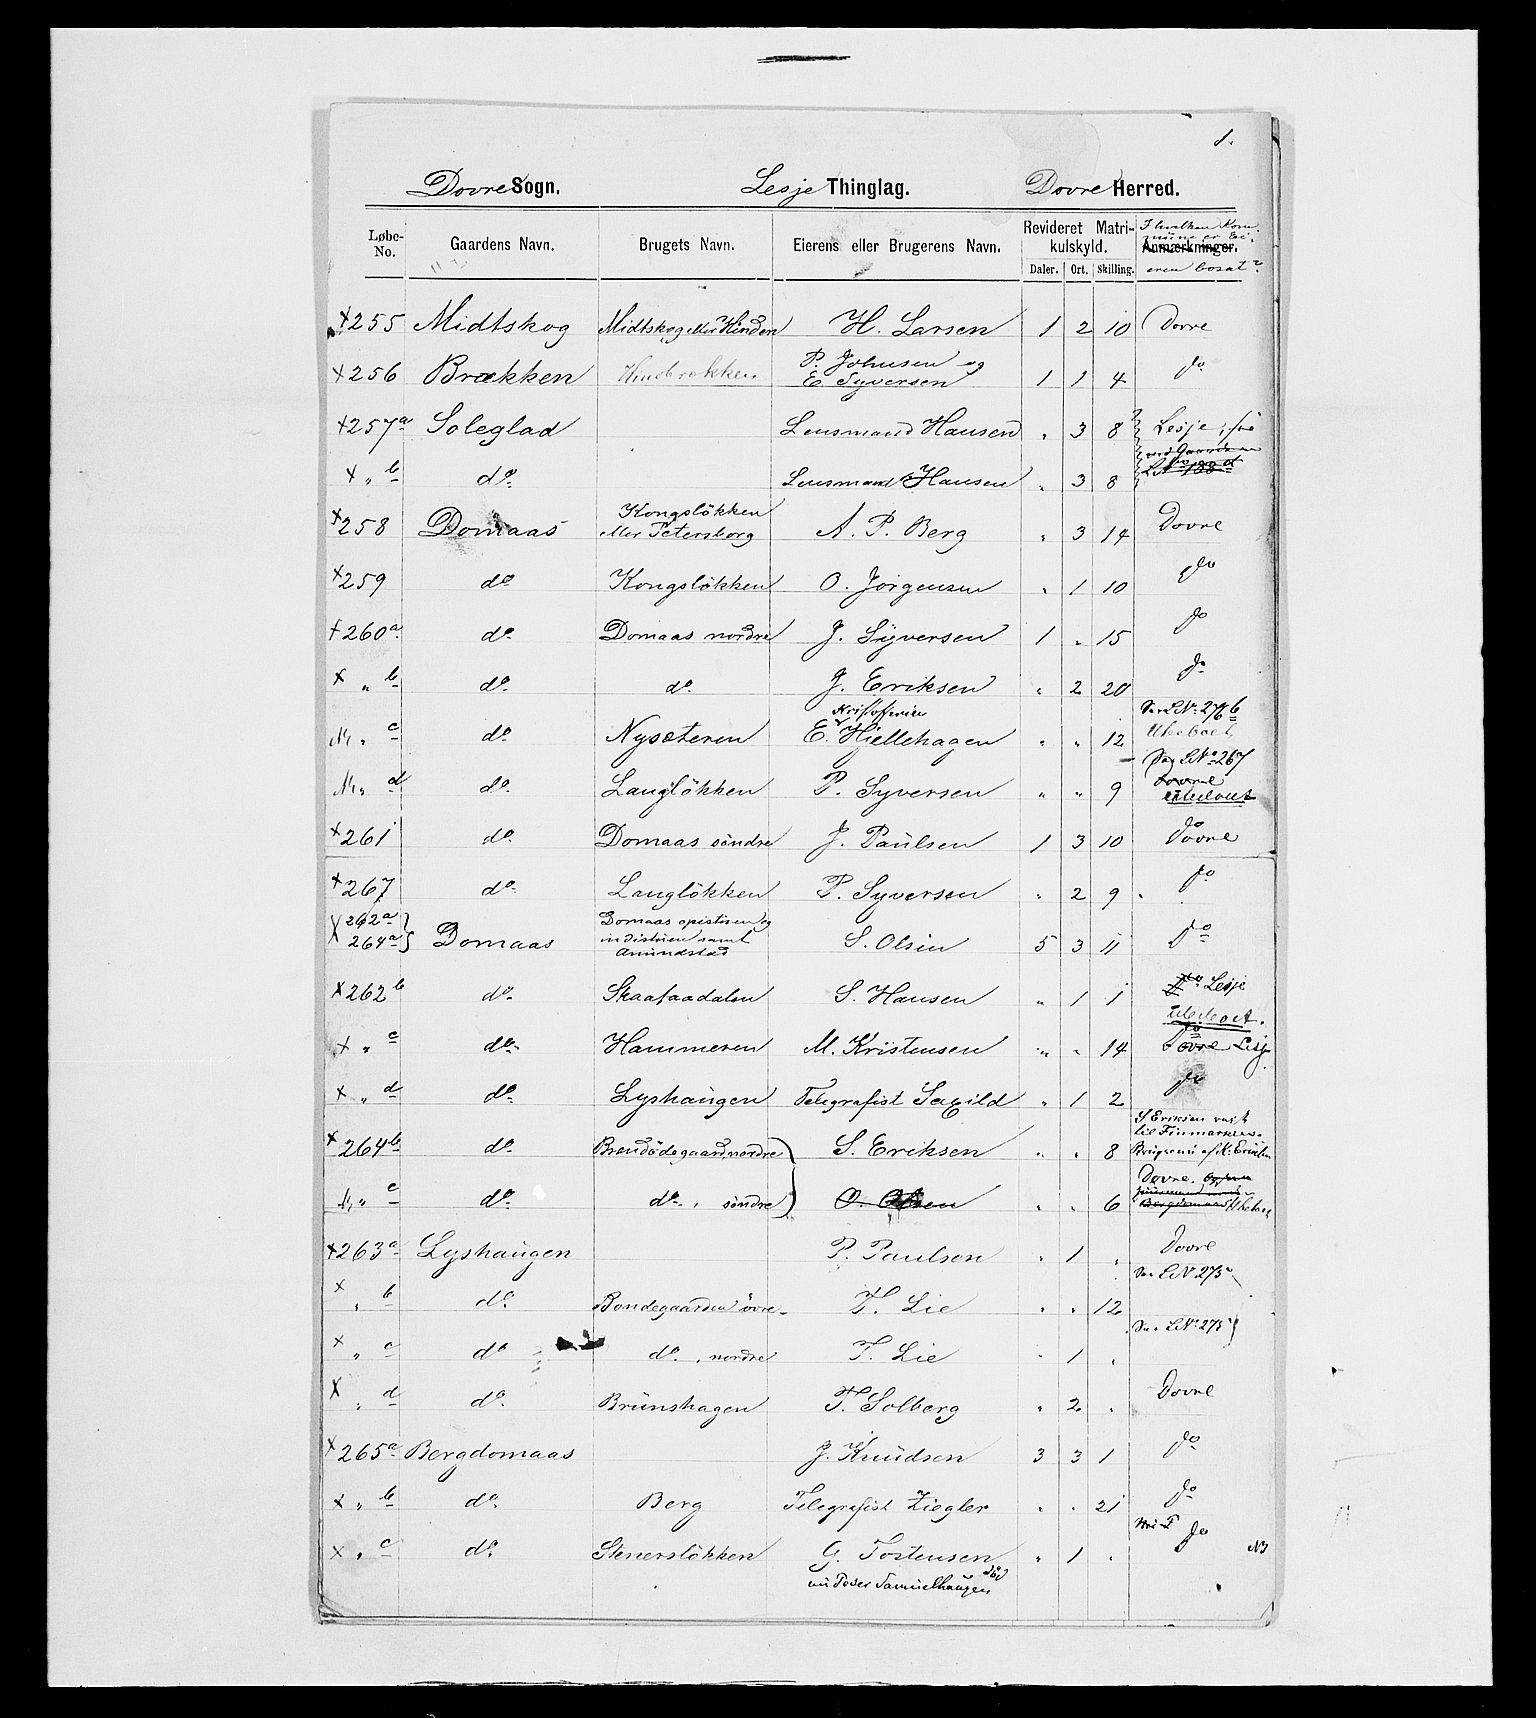 1.
Dovre Sogn. Lesje Thinglag. Dovre Herred.
Løbe-No. Gaardens Navn. Brugets Navn. Eierens eller Brugerens Navn. Revideret Matrikulskyld. Daler. Ort. Skilling. Anmærkninger. I hvilken Kommune er Eieren bosat?
x 255 Midtskog Midtskog eller Hinden H. Larsen 1 2 10 Dovre
x 256 Brækken Hindbrækken P. Johnsen og E Syversen 1 1 4 do
x 257 a Soleglad Lensmand Hansen " 3 8 Lesje
x " b do. Lensmand Hansen " 3 8
x 258 Domaas Kongsløkken eller Petersborg A. P. Berg " 3 14 Dovre
x 259 do Kongsløkken O. Jørgensen " 1 10 do
x 260 a. do. Domaas nordre J. Syversen 1 " 15 do
x " b do. do. J. Eriksen " 2 20 do
" c do. Nysæteren E. Kristofersen Hjellehagen " " 12 Se LNo. 276 b Ubeboet
" d do. Langløkken P. Syversen " " 9 Se LNo 267 Dovre Ubeboet
x 261 do. Domaas søndre J. Paulsen 1 3 10 do Dovre
x 267 do. Langløkken P. Syversen " 2 9 do
x 262 a 264 a } Domaas Domaas opistuen og nedistuen samt Amundstad S. Olsen 5 3 11 do
x 262 b do. Skaafaadalen S. Hansen " 1 1 do Lesje
x " c do. Hammeren M. Kristensen " " 14 Ubeboet. do Dovre Lesje
x " d do. Lyshaugen Telegrafist Saxild " 1 2 do
x 264 b do. Brendødegaard, nordre S. Eriksen " " 8 S Eriksen reist til Finmarken.
" c do. do. , søndre O. Olsen " " 6 Dovre. Ubeboet
x 263 a Lyshaugen P. Paulsen " 1 " Dovre
x " b do. Bondegaarden øvre T. Lie " " 12 Se LNo 275
x " c do do. , nordre T. Lie " 1 " Se LNo. 275
x " d do. Brunshagen T. Solberg " 2 " Dovre
x 265 a Bergdomaas J. Knudsen 3 3 1 do
x " b do. Berg Telegrafist Ziegler " " 21 do
x " c do. Stenersløkken G. Tostensen død " 1 " do
nu Peder Samuelhaugen